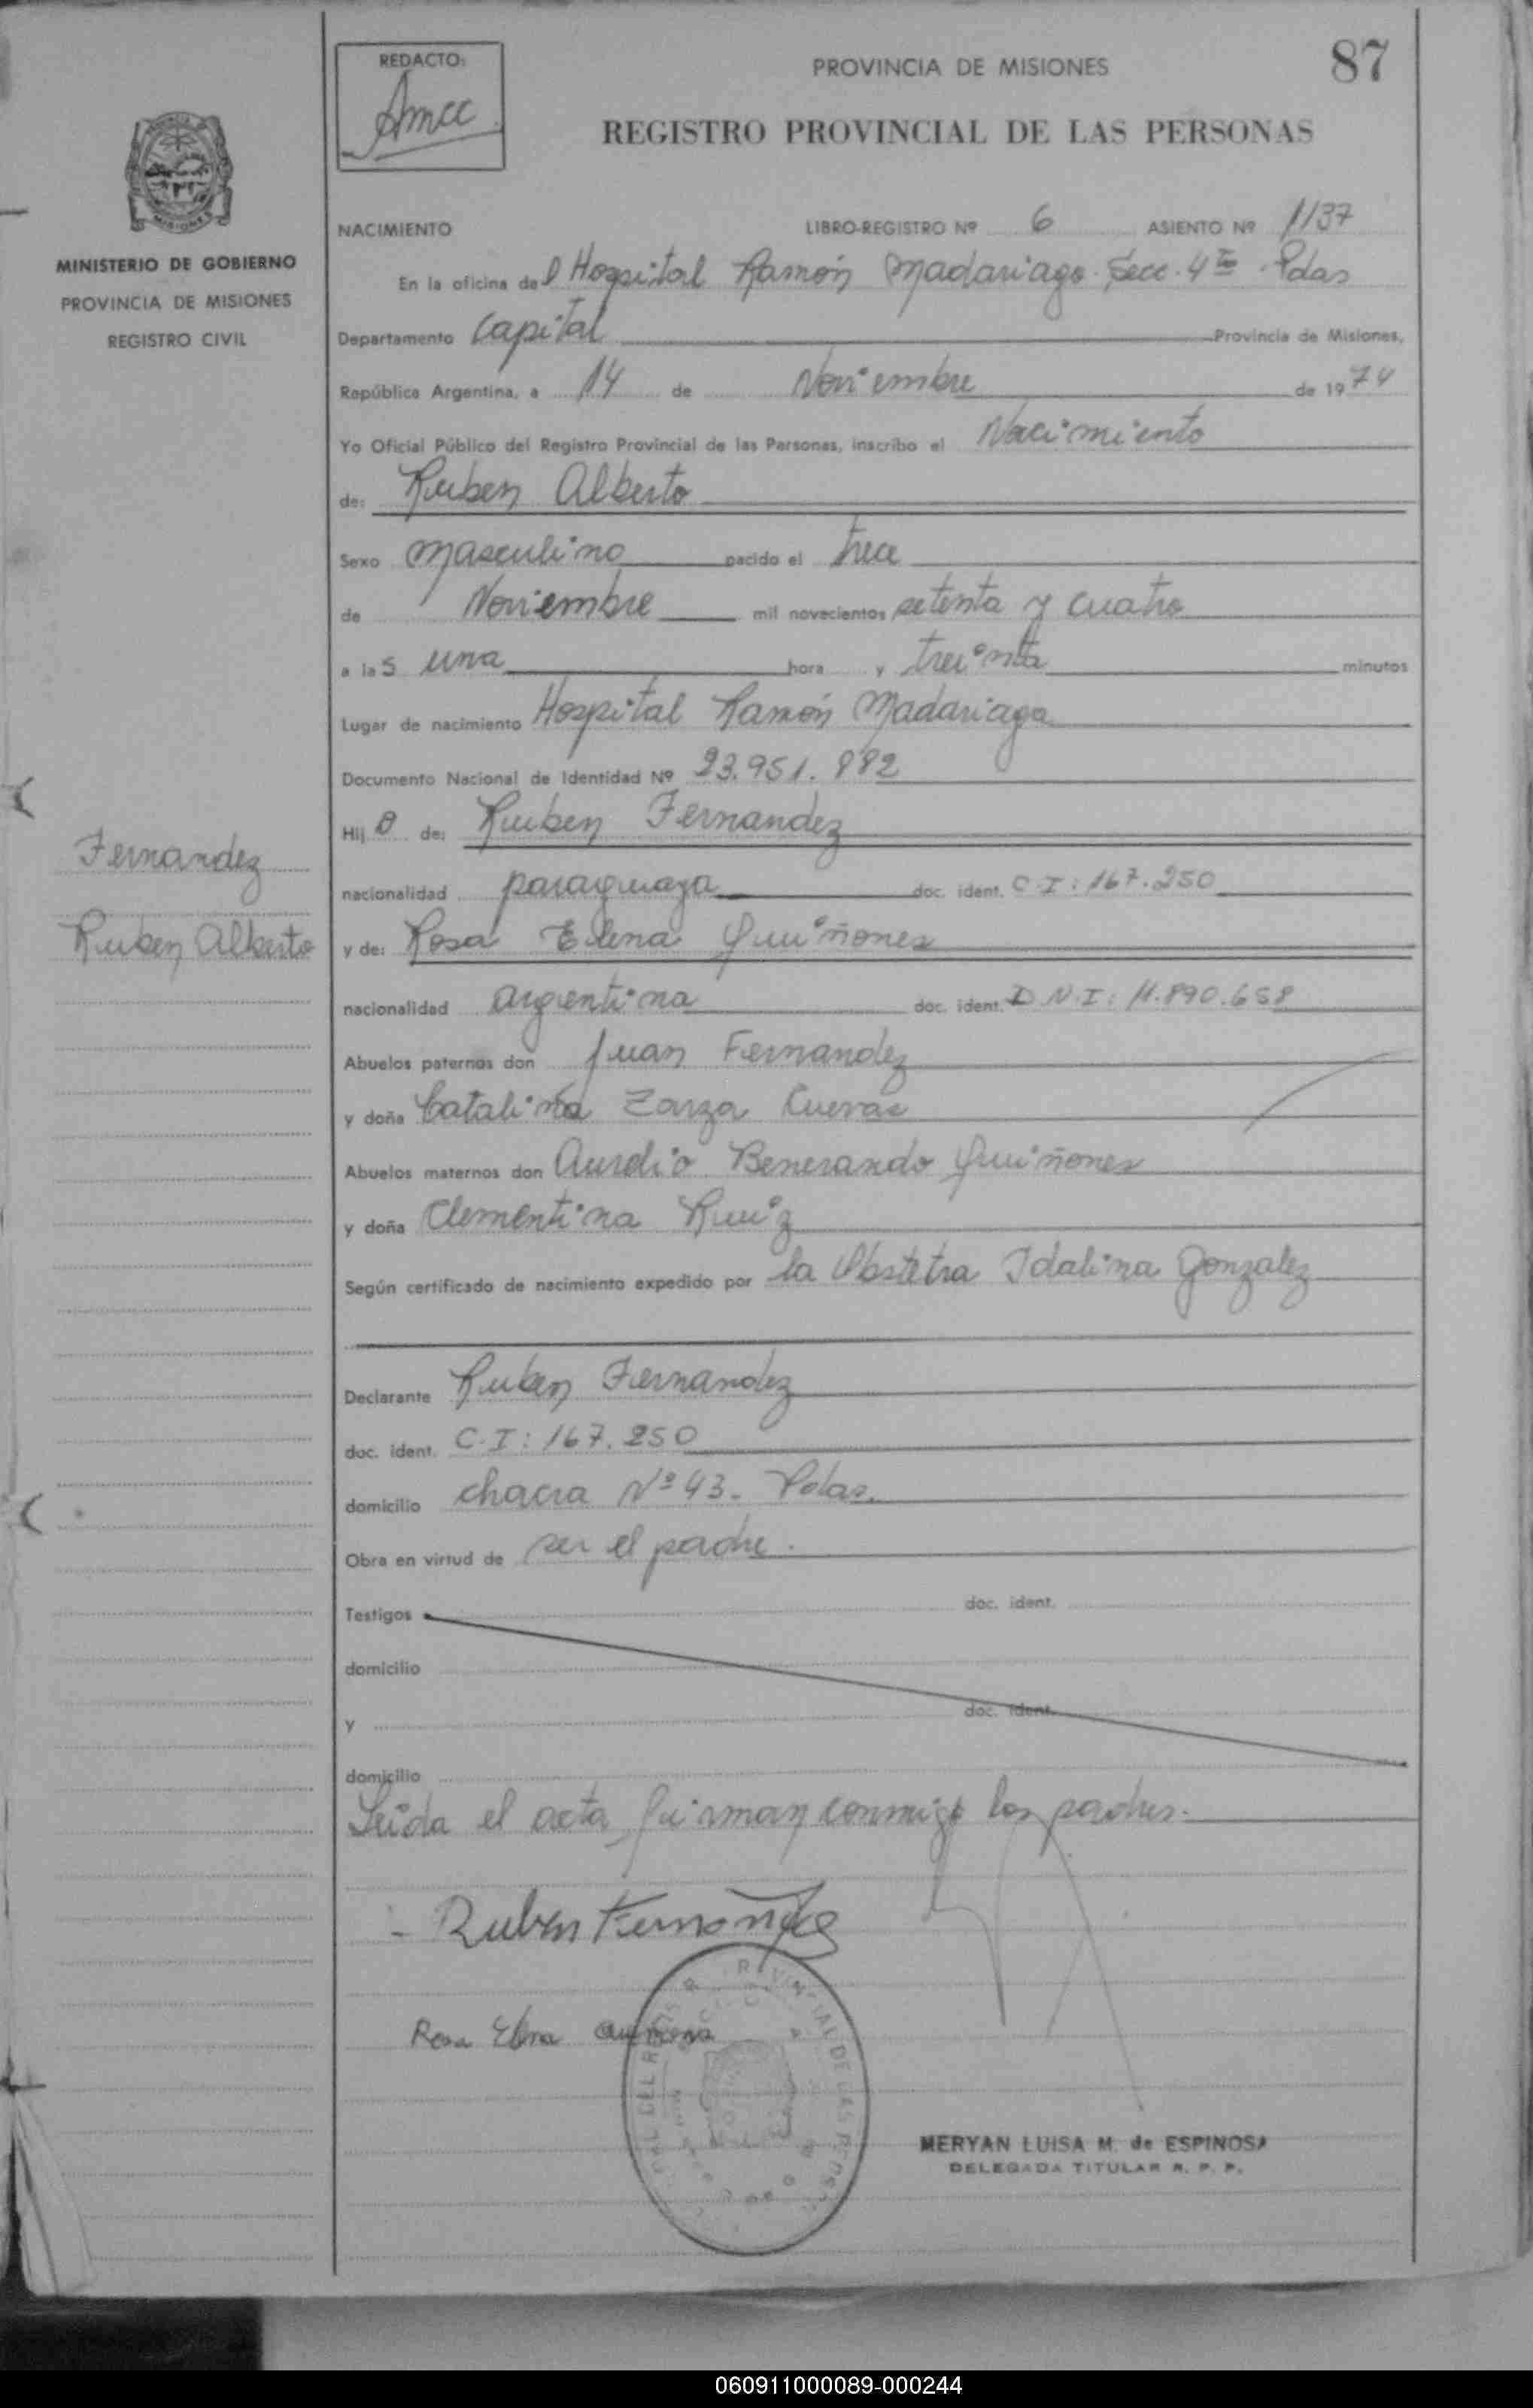 REDACTO:
Amcc
PROVINCIA DE MISIONES
87
REGISTRO PROVINCIAL DE LAS PERSONAS
MISIONES
MINISTERIO DE GOBIERNO
PROVINCIA DE MISIONES
REGISTRO CIVIL
NACIMIENTO LIBRO-REGISTRO Nº 6 ASIENTO Nº 1137
En la oficina del Hospital Ramón Madariaga. Secc. 4ta Pdas
Departamento Capital Provincia de Misiones,
República Argentina, a 14 de Noviembre de 1974
Yo Oficial Público del Registro Provincial de las Personas, inscribo el Nacimiento
de: Ruben Alberto
Sexo masculino nacido el trece
de Noviembre mil novecientos setenta y cuatro
a las una hora y treinta minutos
Lugar de nacimiento Hospital Ramón Madariaga
Documento Nacional de Identidad Nº 23.951.882
Hijo de: Ruben Fernandez
nacionalidad paraguaya doc. ident. C.I: 167.250
y de: Rosa Elena Quiñonez
nacionalidad argentina doc. ident. D.N.I: 11.890.658
Abuelos paternos don Juan Fernandez
y doña Catalina Zarza Cuevas
Abuelos maternos don Aurelio Benerando Quiñonez
y doña Clementina Ruiz
Según certificado de nacimiento expedido por la Obstetra Idalina Gonzalez
Declarante Ruben Fernandez
doc. ident. C.I: 167.250
domicilio chacra Nº 43. Pdas.
Obra en virtud de ser el padre.
Testigos doc. ident.
domicilio
y doc. ident.
domicilio
Leida el acta firman conmigo los padres.
Fernandez
Ruben Alberto
Ruben Fernandez
Rosa Elena
MERYAN LUISA M. de ESPINOSA
DELEGADA TITULAR R. P. P.
060911000089-000244